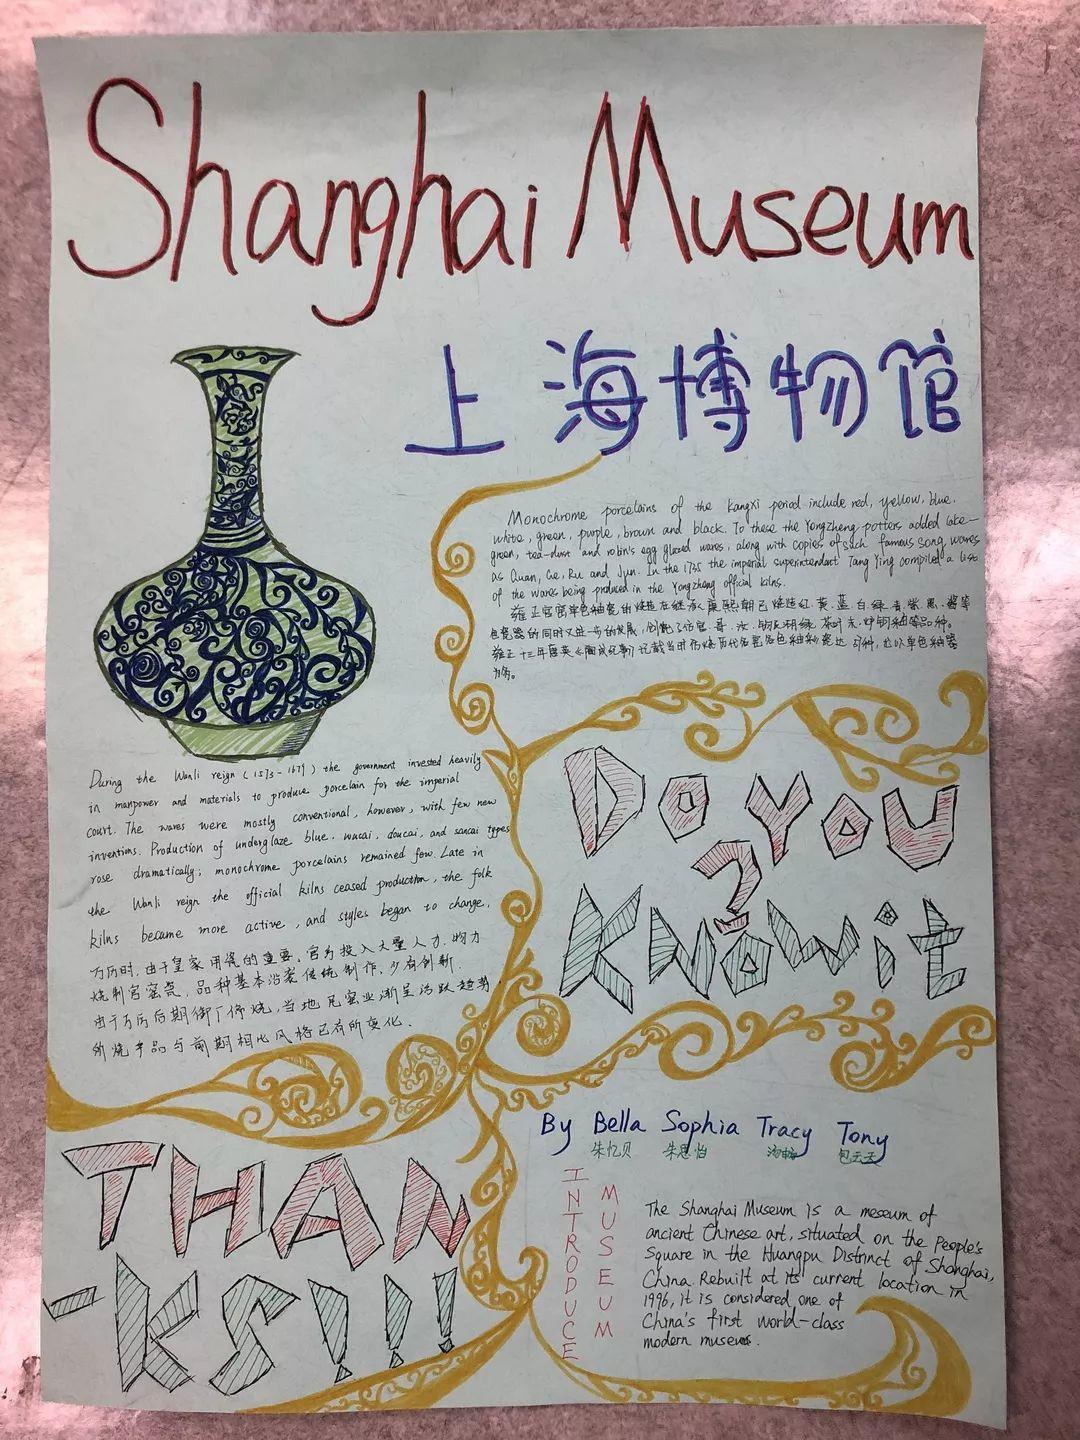 Shanghai Museum
上海博物馆
Monochrome porcelains of the Kangxi period include red, yellow, blue,
white, green, purple, brown and black. To these the Yongzheng potters added lake-
green, tea-dust and robin's egg glazed wares, along with copies of such famous Song wares
as Guan, Ge, Ru and Jun. In the 1735 the imperial superintendant Tang Ying compiled a list
of the wares being produced in the Yongzheng official kilns.
雍正官窑单色釉瓷的烧造在继承康熙朝已烧造红、黄、蓝、白、绿、青、紫、黑、酱等
色瓷器的同时又进一步的发展,创
雍正十三年唐英《陶成纪事》记载当时仿烧历代名窑
为多。
During the Wanli reign (1573-1619) the government invested heavily
in manpower and materials to produce porcelain for the imperial
court. The wares were mostly conventional, however, with few new
inventions. Production of underglaze blue, wucai, doucai, and sancai types
rose dramatically; monochrome porcelains remained few. Late in
the Wanli reign the official kilns ceased production, the folk
kilns became more active, and styles began to change.
万历时,由于皇家用瓷的重要,官方投入大量人力、物力
烧制官窑瓷,品种基本沿袭传统制作,少有创新.
由于万历后期御厂停烧,当地民窑业渐呈活跃趋势
所烧产品与前期相比风格已有所变化.
Do you
?
Know it
THAN
-KS!!!
By Bella Sophia Tracy Tony
朱忆贝 朱思怡 汤畅 包天天
INTRODUCE
MUSEUM
The Shanghai Museum is a meseum of
ancient Chinese art, situated on the People's
Square in the Huangpu Distrinct of Shanghai,
China. Rebuilt at its current location in
1996, it is considered one of
China's first world-class
modern museums.